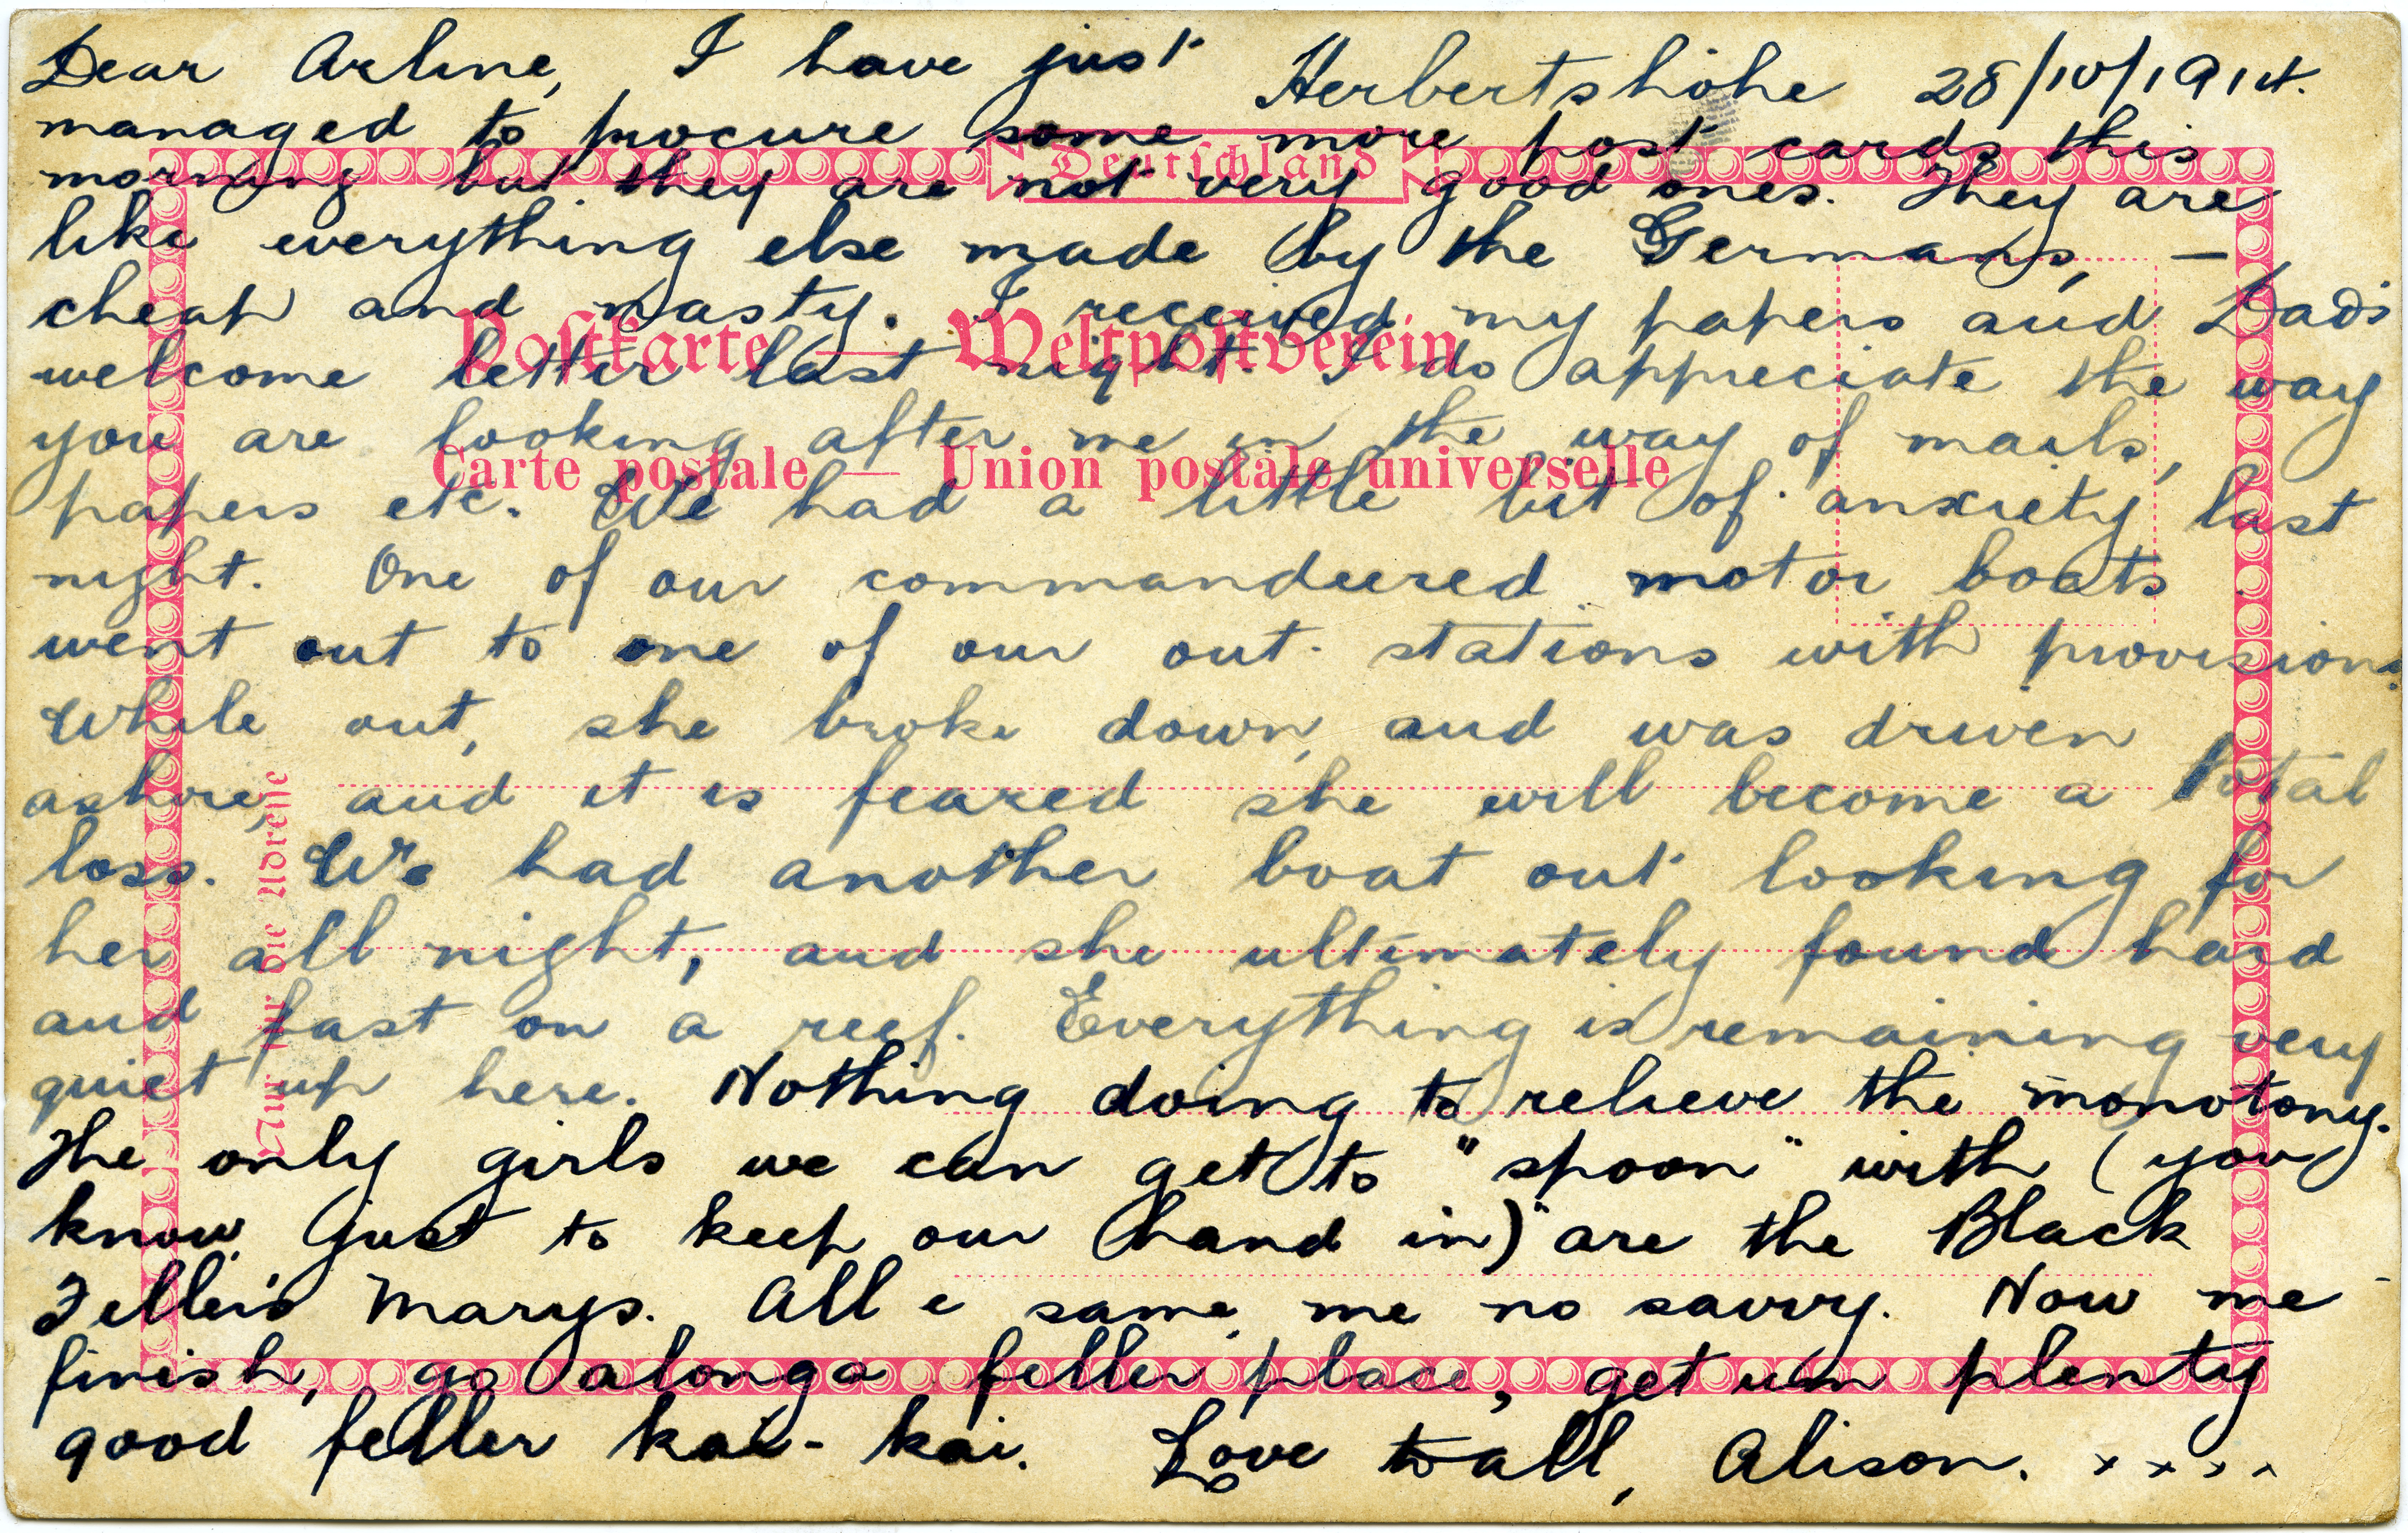 Dear Arline, I have just Herbertshöhe 28/10/1914.
managed to procure some more post cards this
Deutschland
morning but they are not very good ones. They are
like everything else made by the Germans, —
cheap and nasty. I received my papers and Dad's
Postkarte — Weltpostverein
welcome letter last night. I do appreciate the way
you are looking after me in the way of mails,
Carte postale — Union postale universelle
papers etc. We had a little bit of anxiety last
night. One of our commandeered motor boats
went out to one of our out-stations with provisions.
While out, she broke down, and was driven
ashore, and it is feared she will become a total
loss. We had another boat out looking for
her all night, and she ultimately found hard
and fast on a reef. Everything is remaining very
quiet up here. Nothing doing to relieve the monotony.
The only girls we can get to "spoon" with (you
know just to keep our hand in) are the Black
Feller's Marys. All e same me no savvy. Now me
finish, go alonga feller place, get um plenty
good feller kai-kai. Love to all, Alison. x x x x
Nur für die Adresse